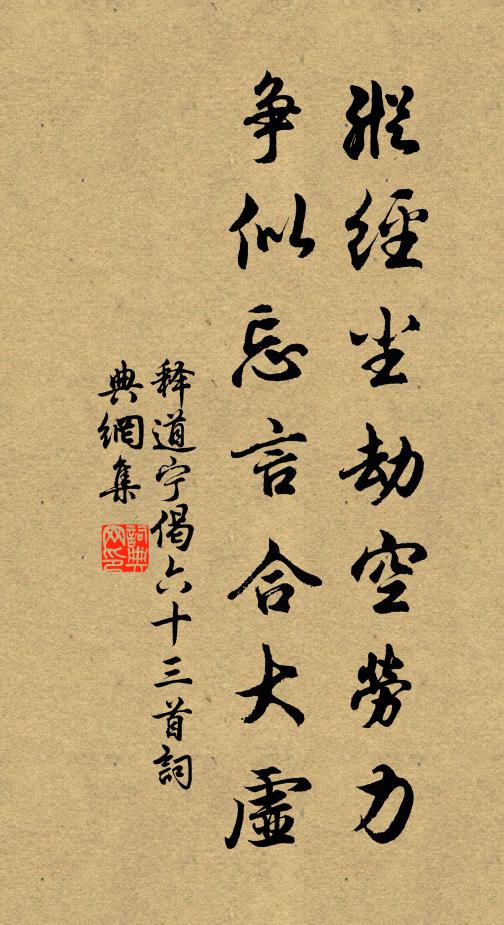 縱經尘劫空勞力
争似忘言合大虛
释道宁偈六十三首詞
典網集
詞典
网印